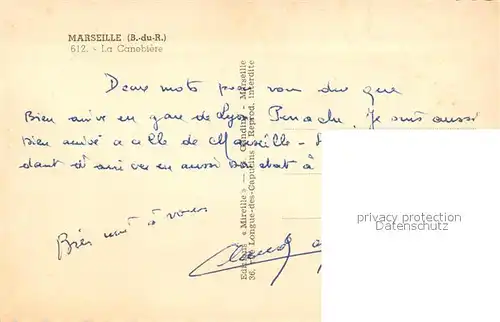 MARSEILLE (B.-du-R.)
612. - La Canebière
Deux mots pour vous dire que
Bien arrivé en gare de Lyon Perrache. Je suis aussi
Bien arrivé a celle de Marseille -
dant d'arriver en aussi bon état à
Bien à vous
Editions « Mireille »
36, Rue Longue-des-Capucins - Marseille
Reprod. interdite
privacy protection
Datenschutz